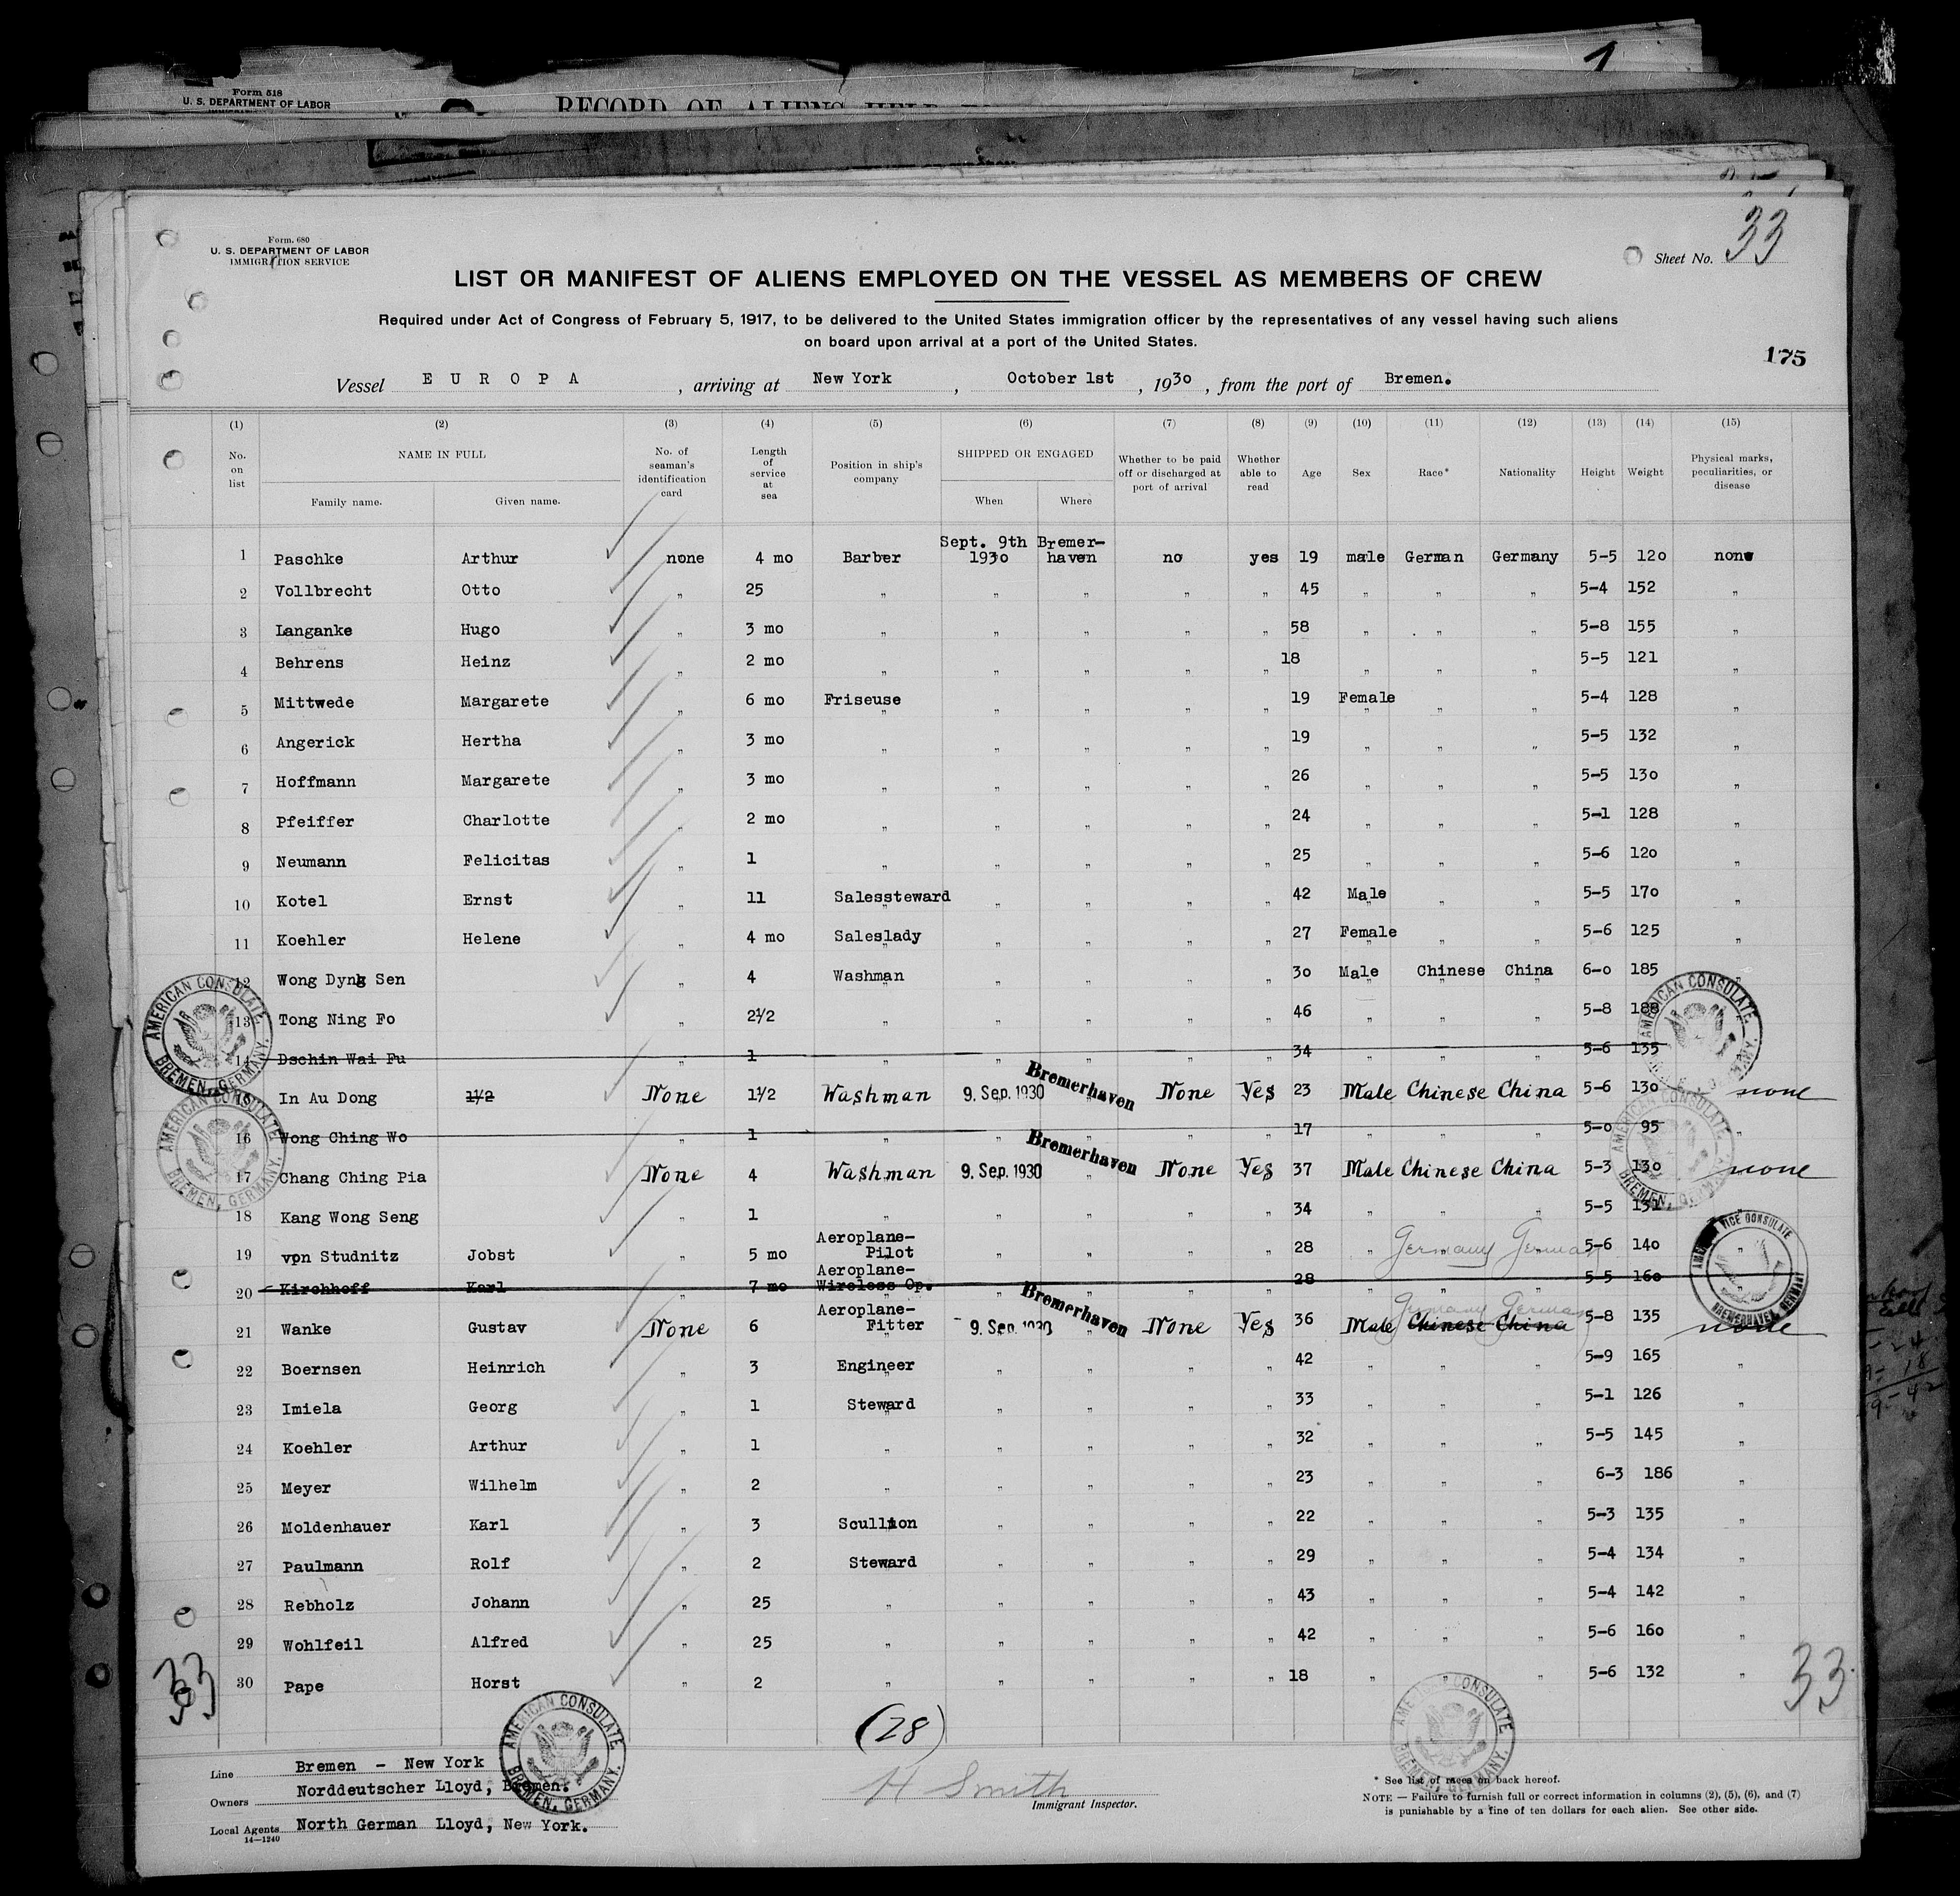 Form 518
U. S. DEPARTMENT OF LABOR
RECORD OF ALIENS HELD
1
Form. 680
U. S. DEPARTMENT OF LABOR
IMMIGRATION SERVICE
Sheet No. 33
LIST OR MANIFEST OF ALIENS EMPLOYED ON THE VESSEL AS MEMBERS OF CREW
Required under Act of Congress of February 5, 1917, to be delivered to the United States immigration officer by the representatives of any vessel having such aliens
on board upon arrival at a port of the United States.
175
Vessel EUROPA , arriving at New York , October 1st , 1930 , from the port of Bremen.
(1) (2) (3) (4) (5) (6) (7) (8) (9) (10) (11) (12) (13) (14) (15)
No. on list NAME IN FULL Family name. Given name. No. of seaman's identification card Length of service at sea Position in ship's company SHIPPED OR ENGAGED When Where Whether to be paid off or discharged at port of arrival Whether able to read Age Sex Race* Nationality Height Weight Physical marks, peculiarities, or disease
1 Paschke Arthur none 4 mo Barber Sept. 9th 1930 Bremer-haven no yes 19 male German Germany 5-5 120 none
2 Vollbrecht Otto " 25 " " " " " 45 " " " 5-4 152 "
3 Langanke Hugo " 3 mo " " " " " 58 " " " 5-8 155 "
4 Behrens Heinz " 2 mo " " " " " 18 " " " 5-5 121 "
5 Mittwede Margarete " 6 mo Friseuse " " " " 19 Female " " 5-4 128 "
6 Angerick Hertha " 3 mo " " " " " 19 " " " 5-5 132 "
7 Hoffmann Margarete " 3 mo " " " " " 26 " " " 5-5 130 "
8 Pfeiffer Charlotte " 2 mo " " " " " 24 " " " 5-1 128 "
9 Neumann Felicitas " 1 " " " " " 25 " " " 5-6 120 "
10 Kotel Ernst " 11 Salessteward " " " " 42 Male " " 5-5 170 "
11 Koehler Helene " 4 mo Saleslady " " " " 27 Female " " 5-6 125 "
12 Wong Dyng Sen " 4 Washman " " " " 30 Male Chinese China 6-0 185 "
13 Tong Ning Fo " 2½ " " " " " 46 " " " 5-8 188
14 Dschin Wai Fu " 1 " " " " " 34 " " " 5-6 135
15 In Au Dong 1½ None 1½ Washman 9. Sep. 1930 Bremerhaven None Yes 23 Male Chinese China 5-6 130 none
16 Wong Ching Wo " 1 " " " " " 17 " " " 5-0 95 "
17 Chang Ching Pia None 4 Washman 9. Sep. 1930 Bremerhaven None Yes 37 Male Chinese China 5-3 130 none
18 Kang Wong Seng " 1 " " " " " 34 " " " 5-5 131
19 von Studnitz Jobst " 5 mo Aeroplane-Pilot " " " " 28 " Germany German 5-6 140 "
20 Kirchhoff Karl " 7 mo Aeroplane-Wireless Op. " " " " 28 " " " 5-5 160
21 Wanke Gustav None 6 Aeroplane-Fitter 9. Sep. 1930 Bremerhaven None Yes 36 Male Chinese China Germany German 5-8 135 none
22 Boernsen Heinrich " 3 Engineer " " " " 42 " " " 5-9 165 "
23 Imiela Georg " 1 Steward " " " " 33 " " " 5-1 126 "
24 Koehler Arthur " 1 " " " " " 32 " " " 5-5 145 "
25 Meyer Wilhelm " 2 " " " " " 23 " " " 6-3 186 "
26 Moldenhauer Karl " 3 Scullion " " " " 22 " " " 5-3 135 "
27 Paulmann Rolf " 2 Steward " " " " 29 " " " 5-4 134 "
28 Rebholz Johann " 25 " " " " " 43 " " " 5-4 142 "
29 Wohlfeil Alfred " 25 " " " " " 42 " " " 5-6 160 "
30 Pape Horst " 2 " " " " " 18 " " " 5-6 132 "
AMERICAN CONSULATE BREMEN, GERMANY.
AMERICAN CONSULATE BREMEN, GERMANY.
AMERICAN CONSULATE
AMERICAN CONSULATE BREMEN, GERMANY.
AMERICAN VICE CONSULATE BREMERHAVEN, GERMANY
33
33
(28)
AMERICAN CONSULATE BREMEN, GERMANY.
AMERICAN CONSULATE BREMEN, GERMANY.
Line Bremen - New York
Owners Norddeutscher Lloyd, Bremen.
Local Agents North German Lloyd, New York.
14—1240
H Smith
Immigrant Inspector.
* See list of races on back hereof.
NOTE — Failure to furnish full or correct information in columns (2), (5), (6), and (7)
is punishable by a fine of ten dollars for each alien. See other side.